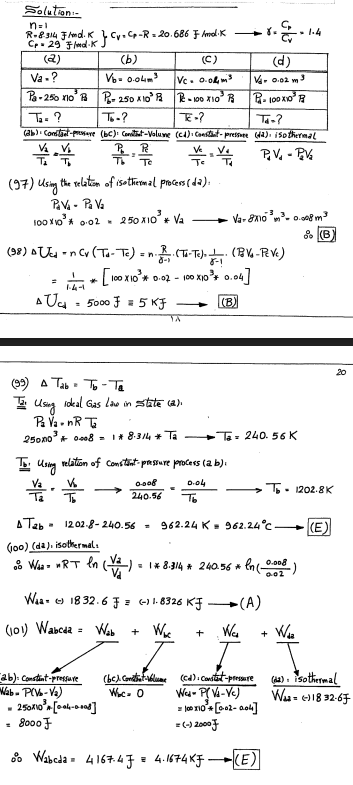 Solution:-
n=1
R=8.314 J/mol.K } Cv = Cp-R = 20.686 J/mol.K → γ = Cp/Cv = 1.4
Cp=29 J/mol.K
(a) (b) (c) (d)
Va=? Vb=0.04m³ Vc=0.04m³ Vd=0.02 m³
Pa=250 X10³ Pa Pb=250 X10³ Pa Pc=100X10³ Pa Pd=100X10³ Pa
Ta=? Tb=? Tc=? Td=?
(ab): Constant-pressure (bc): Constant-Volume (cd): Constant-pressure (da): isothermal
Va/Ta = Vb/Tb Pb/Tb = Pc/Tc Vc/Tc = Vd/Td PdVd = PaVa
(97) Using the relation of isothermal process (da):
PdVd = PaVa
100X10³ * 0.02 = 250X10³ * Va → Va = 8X10⁻³ m³ = 0.008 m³
∴ (B)
(98) ΔUcd = n Cv (Td-Tc) = n. R/γ-1 . (Td-Tc) = 1/γ-1 . (PdVd - PcVc)
= 1/1.4-1 * [100X10³ * 0.02 - 100X10³ * 0.04]
ΔUcd = 5000 J ≡ 5 KJ → (B)
١٨
20
(99) ΔTab = Tb - Ta
Ta: Using ideal Gas Law in State (a):
PaVa = nRTa
250X10³ * 0.008 = 1 * 8.314 * Ta → Ta = 240.56 K
Tb: Using relation of constant-pressure process (ab):
Va/Ta = Vb/Tb → 0.008/240.56 = 0.04/Tb → Tb = 1202.8K
ΔTab = 1202.8 - 240.56 = 962.24 K ≡ 962.24°C → (E)
(100) (da): isothermal:
∴ Wda = nRT ln (Va/Vd) = 1 * 8.314 * 240.56 * ln(0.008/0.02)
Wda = (-) 1832.6 J ≡ (-) 1.8326 KJ → (A)
(101) Wabcda = Wab + Wbc + Wcd + Wda
(ab): Constant-pressure (bc): Constant-Volume (cd): Constant-pressure (da): isothermal
Wab = P(Vb-Va) Wbc = 0 Wcd = P(Vd-Vc) Wda = (-) 1832.6J
= 250X10³ * [0.04-0.008] = 100X10³ * [0.02-0.04]
= 8000 J = (-) 2000 J
∴ Wabcda = 4167.4 J ≡ 4.1674 KJ → (E)